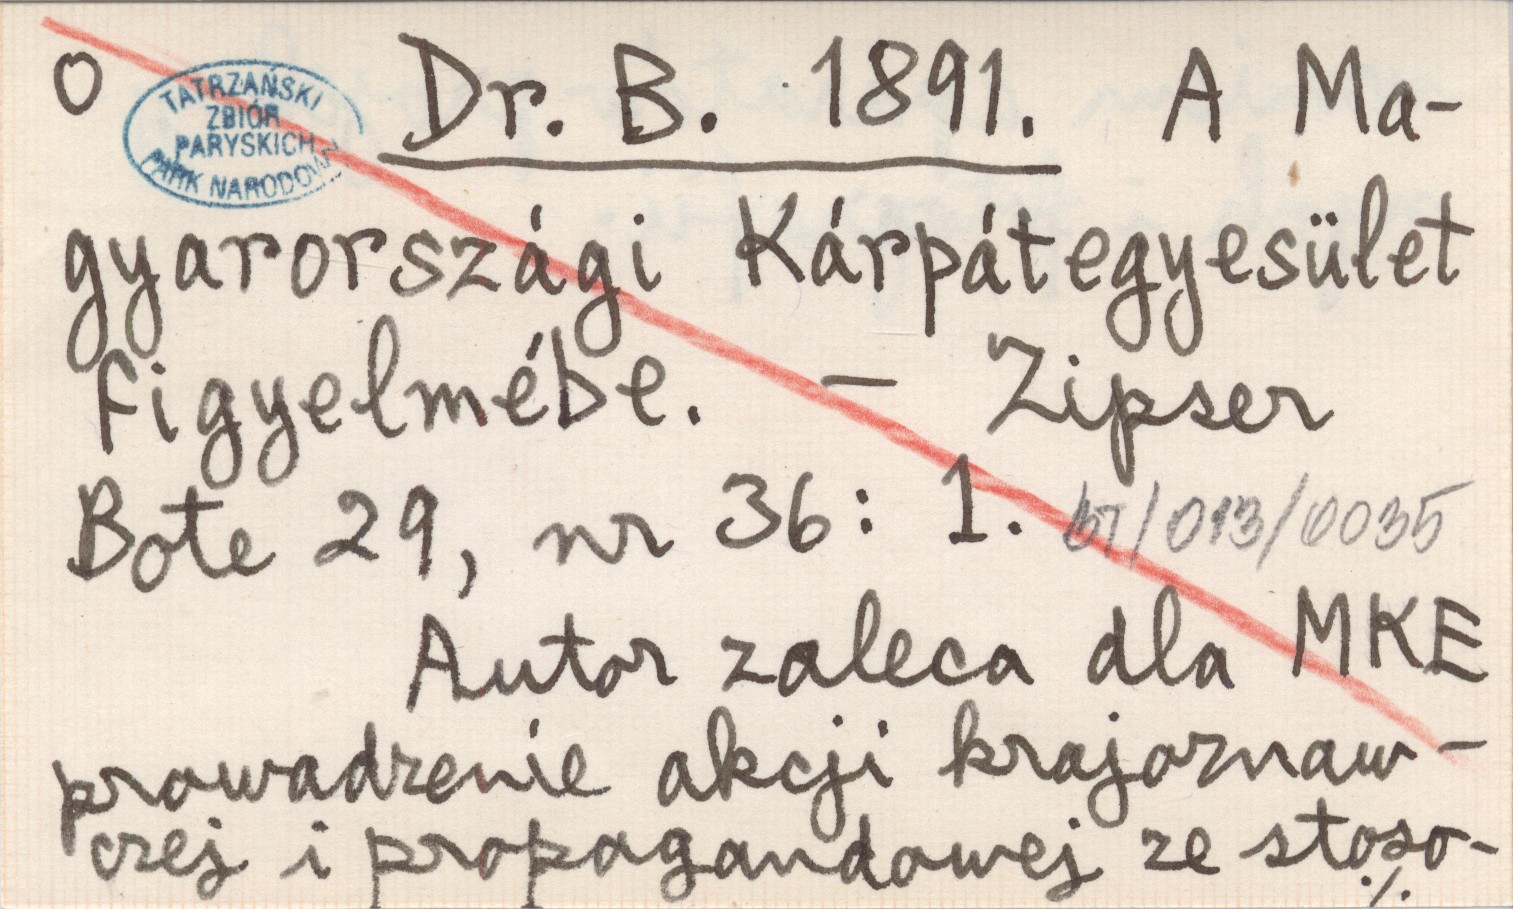 o Dr. B. 1891. A Ma-
TATRZAŃSKI
ZBIÓR
PARYSKICH
PARK NARODOWY
gyarországi Kárpátegyesület
figyelmébe. – Zipser
Bote 29, nr 36: 1. bT/013/0035
Autor zaleca dla MKE
prowadzenie akcji krajoznaw-
czej i propagandowej ze stoso-
./.